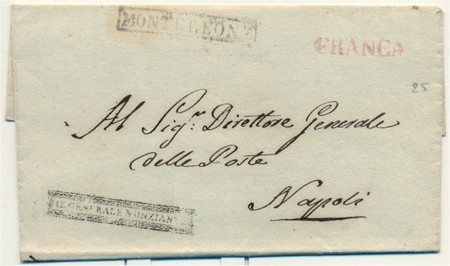 MONTELEONE
FRANCA
25
Al Sigr. Direttore Generale
delle Poste
Napoli
IL GENERALE NUNZIANTE